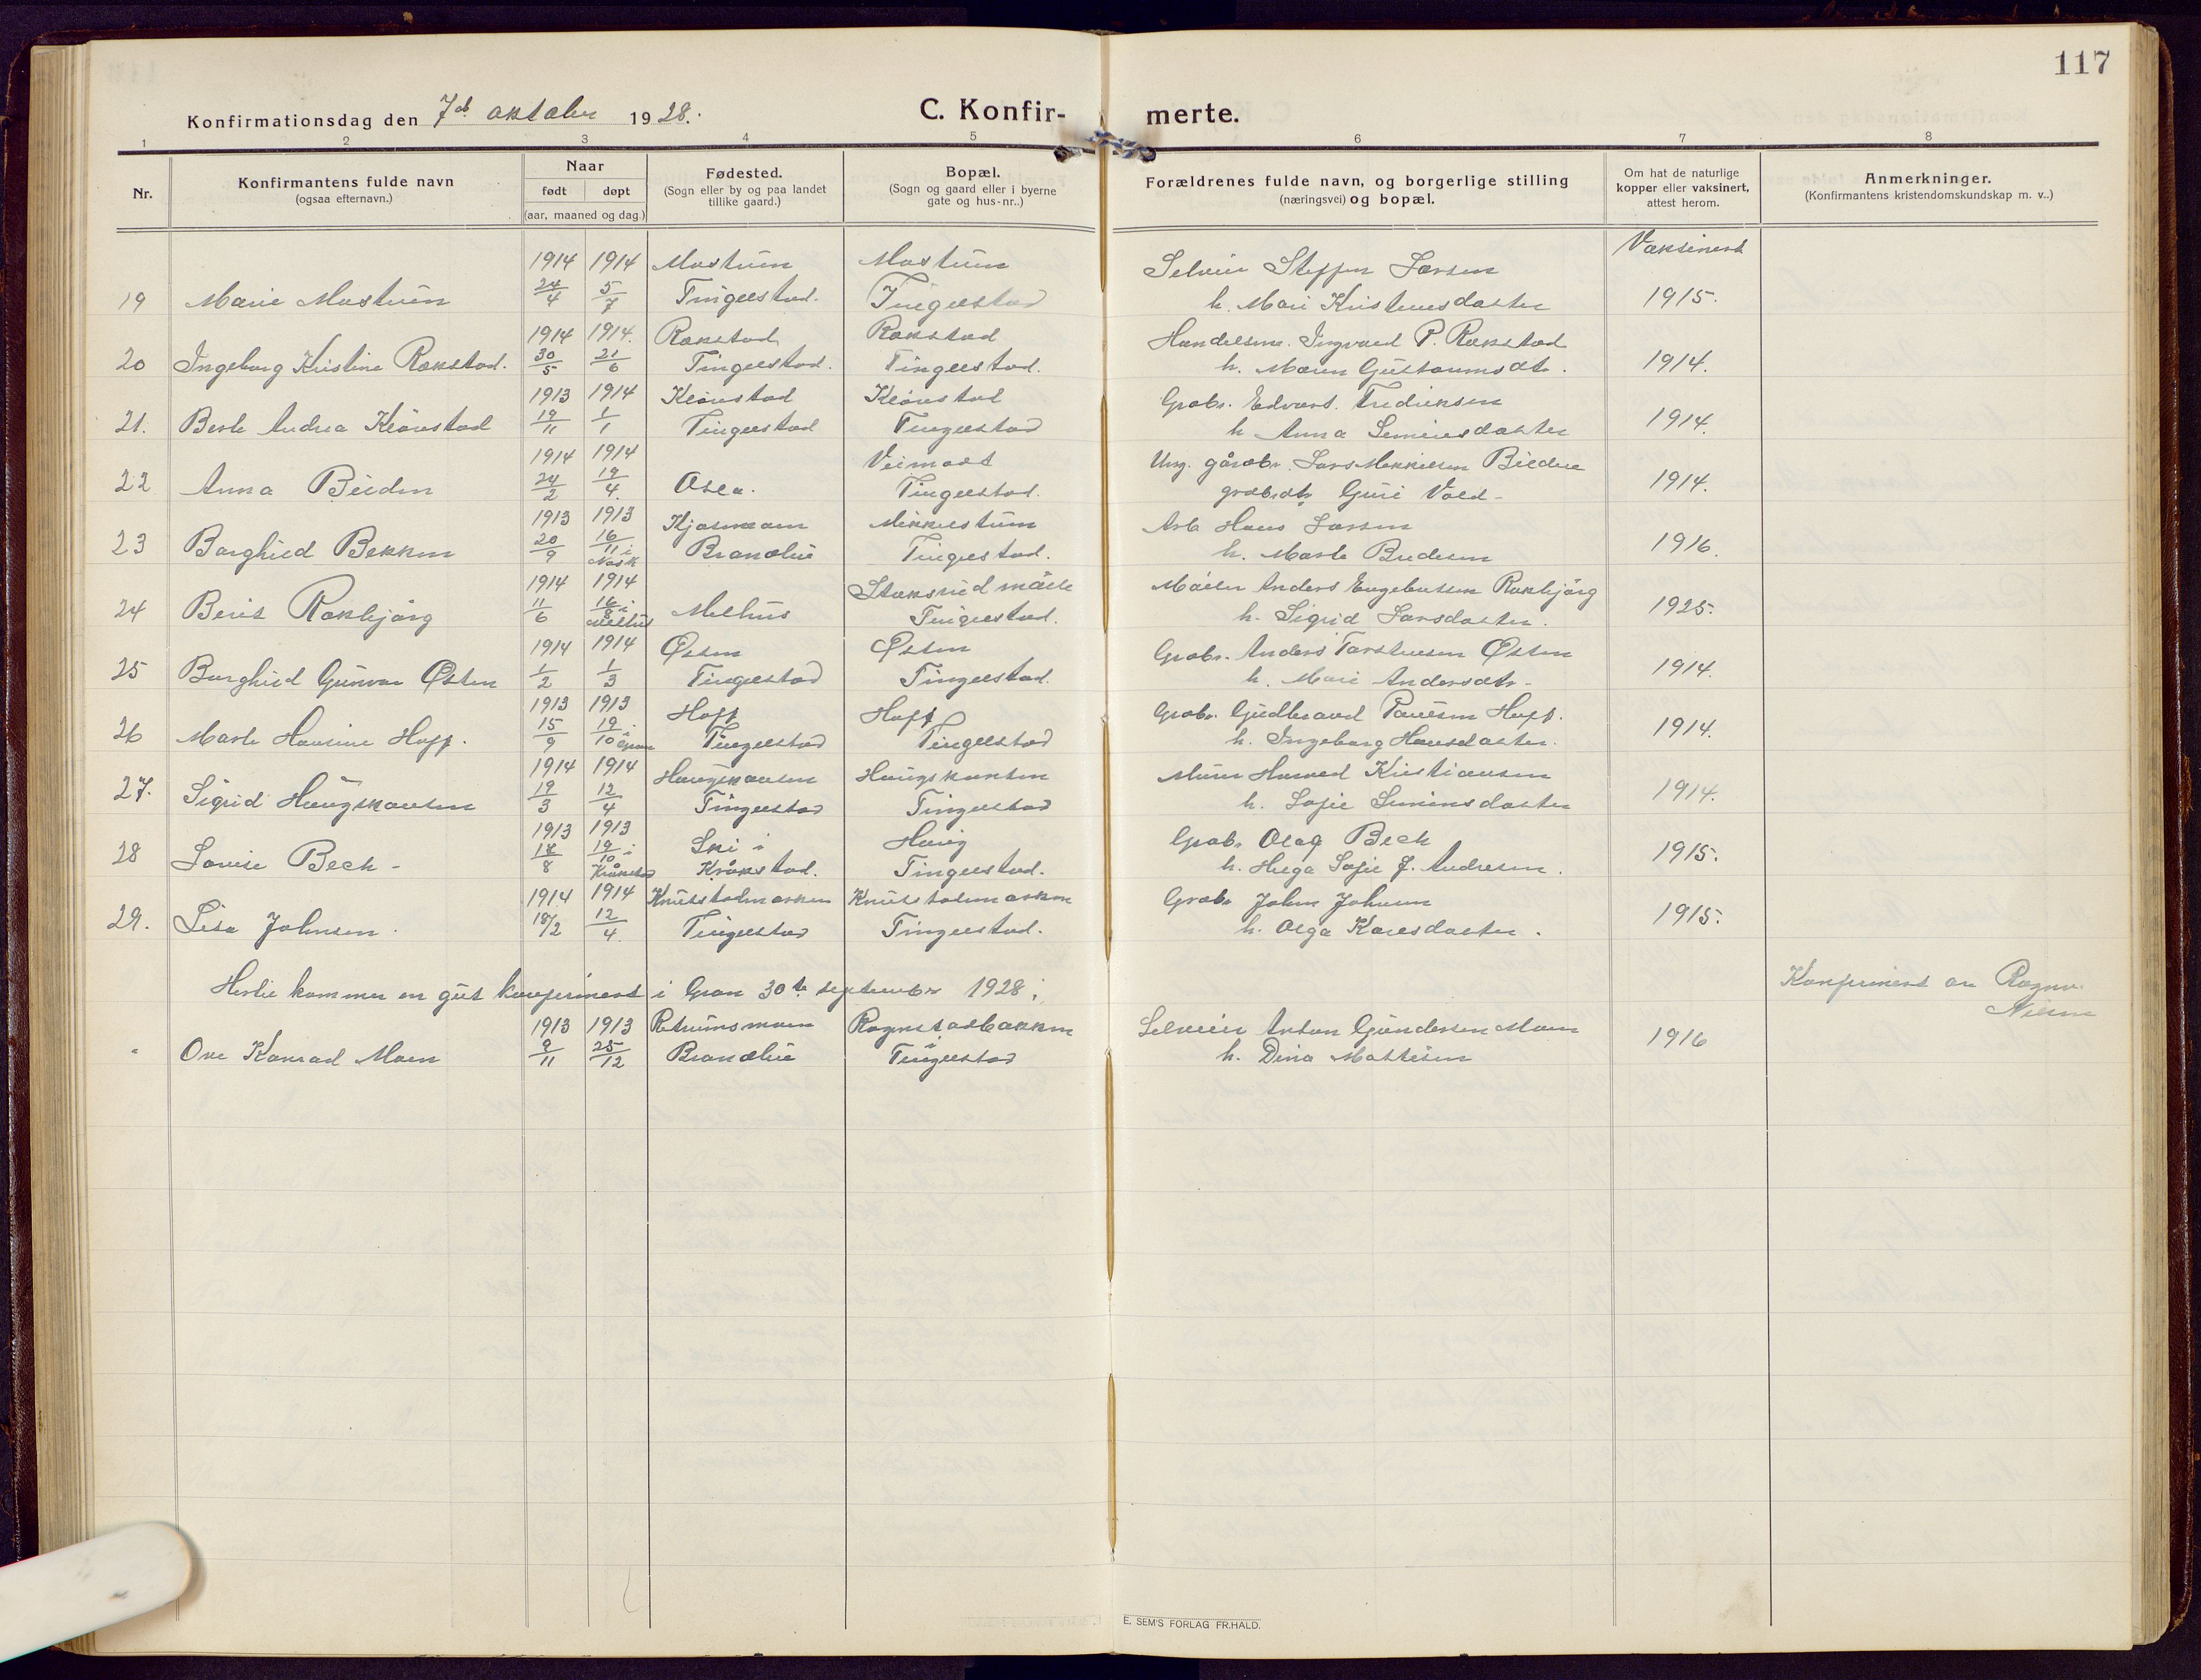 117
Konfirmationsdag den 7de oktober 1928.
C. Konfir-
merte.
1 2 3 4 5 6 7 8
Nr.
Konfirmantens fulde navn
(ogsaa efternavn.)
Naar
født døpt
(aar, maaned og dag.)
Fødested.
(Sogn eller by og paa landet
tillike gaard.)
Bopæl.
(Sogn og gaard eller i byerne
gate og hus-nr..)
Forældrenes fulde navn, og borgerlige stilling
(næringsvei) og bopæl.
Om hat de naturlige
kopper eller vaksinert,
attest herom.
Anmerkninger.
(Konfirmantens kristendomskundskap m. v..)
1914 1914 Mostuen Mostuen Selveier Steffen Larsen Vaksinert
19 Marie Mostuen 24/4 5/7 Tingelstad. Tingelstad h. Mari Kristensdatter 1915.
1914 1914. Rækstad Rækstad Handelsm. Ingvald P. Rækstad
20 Ingeborg Kristine Rækstad. 30/5 21/6 Tingelstad. Tingelstad. h. Maren Gustavmsdtr. 1914.
1913 1914 Klønstad Klønstad Grdbr. Edvard Fredriksen
21. Berte Andrea Klønstad 19/11 1/1 Tingelstad Tingelstad h Anna Simensdatter 1914.
1914 1914 Veimodt Ung. gårdbr. Lars Mikkelsen
22 Anna 24/2 19/4. Oslo. Tingelstad. grdbrdtr Guri Vold - 1914.
1913 1913 Mikkelstuen Arb Hans Larsen
23 Borghild Bekken 20/9 16/11 i Brandbu Tingelstad. h. Marte 1916.
1914 1914 Møller Anders Engebretsen
24 Berit 11/6 16/8 i Melhus Melhus Tingelstad. h. Sigrid Larsdatter. 1925.
1914 1914 Østen Østen Grdbr. Anders Torstensen Østen
25 Borghild Gunvor Østen 1/2 1/3 Tingelstad Tingelstad. h. Mari Andersdtr - 1914.
1913 1913 Hoff Hoff Grdbr. Gudbrand Paulsen Hoff.
26 Marte Hansine Hoff. 15/9 19/10 i Gran Tingelstad Tingelstad h. Ingeborg Hansdatter. 1914.
1914 1914 Haugskansen Haugskansen Harald Kristiansen
27. Sigrid Haugskansen 19/3 12/4 Tingelstad Tingelstad h. Sofie Simensdatter 1914.
1913 1913 Ski i Haug Grdbr Olaf Bech
28 Lovise Bech - 14/8 19/10 i Kråkstad Kråkstad. Tingelstad. h. Helga Sofie J. Andresen. 1915.
1914 1914 Grdbr John Johnsen
29. Lisa Johnsen. 18/2 12/4. Tingelstad Tingelstad. h. Olga Karlsdatter. 1915.
Hertil kommer en gut konfirmert i Gran 30te september 1928: Konfirmert av
1913 1913 Rognstadbakken Selveier Anton Gundersen Moen
" Ove Konrad Moen 9/11 25/12 Brandbu Tingelstad h. Dina Mathisen 1916
E. SEM'S FORLAG FR.HALD.